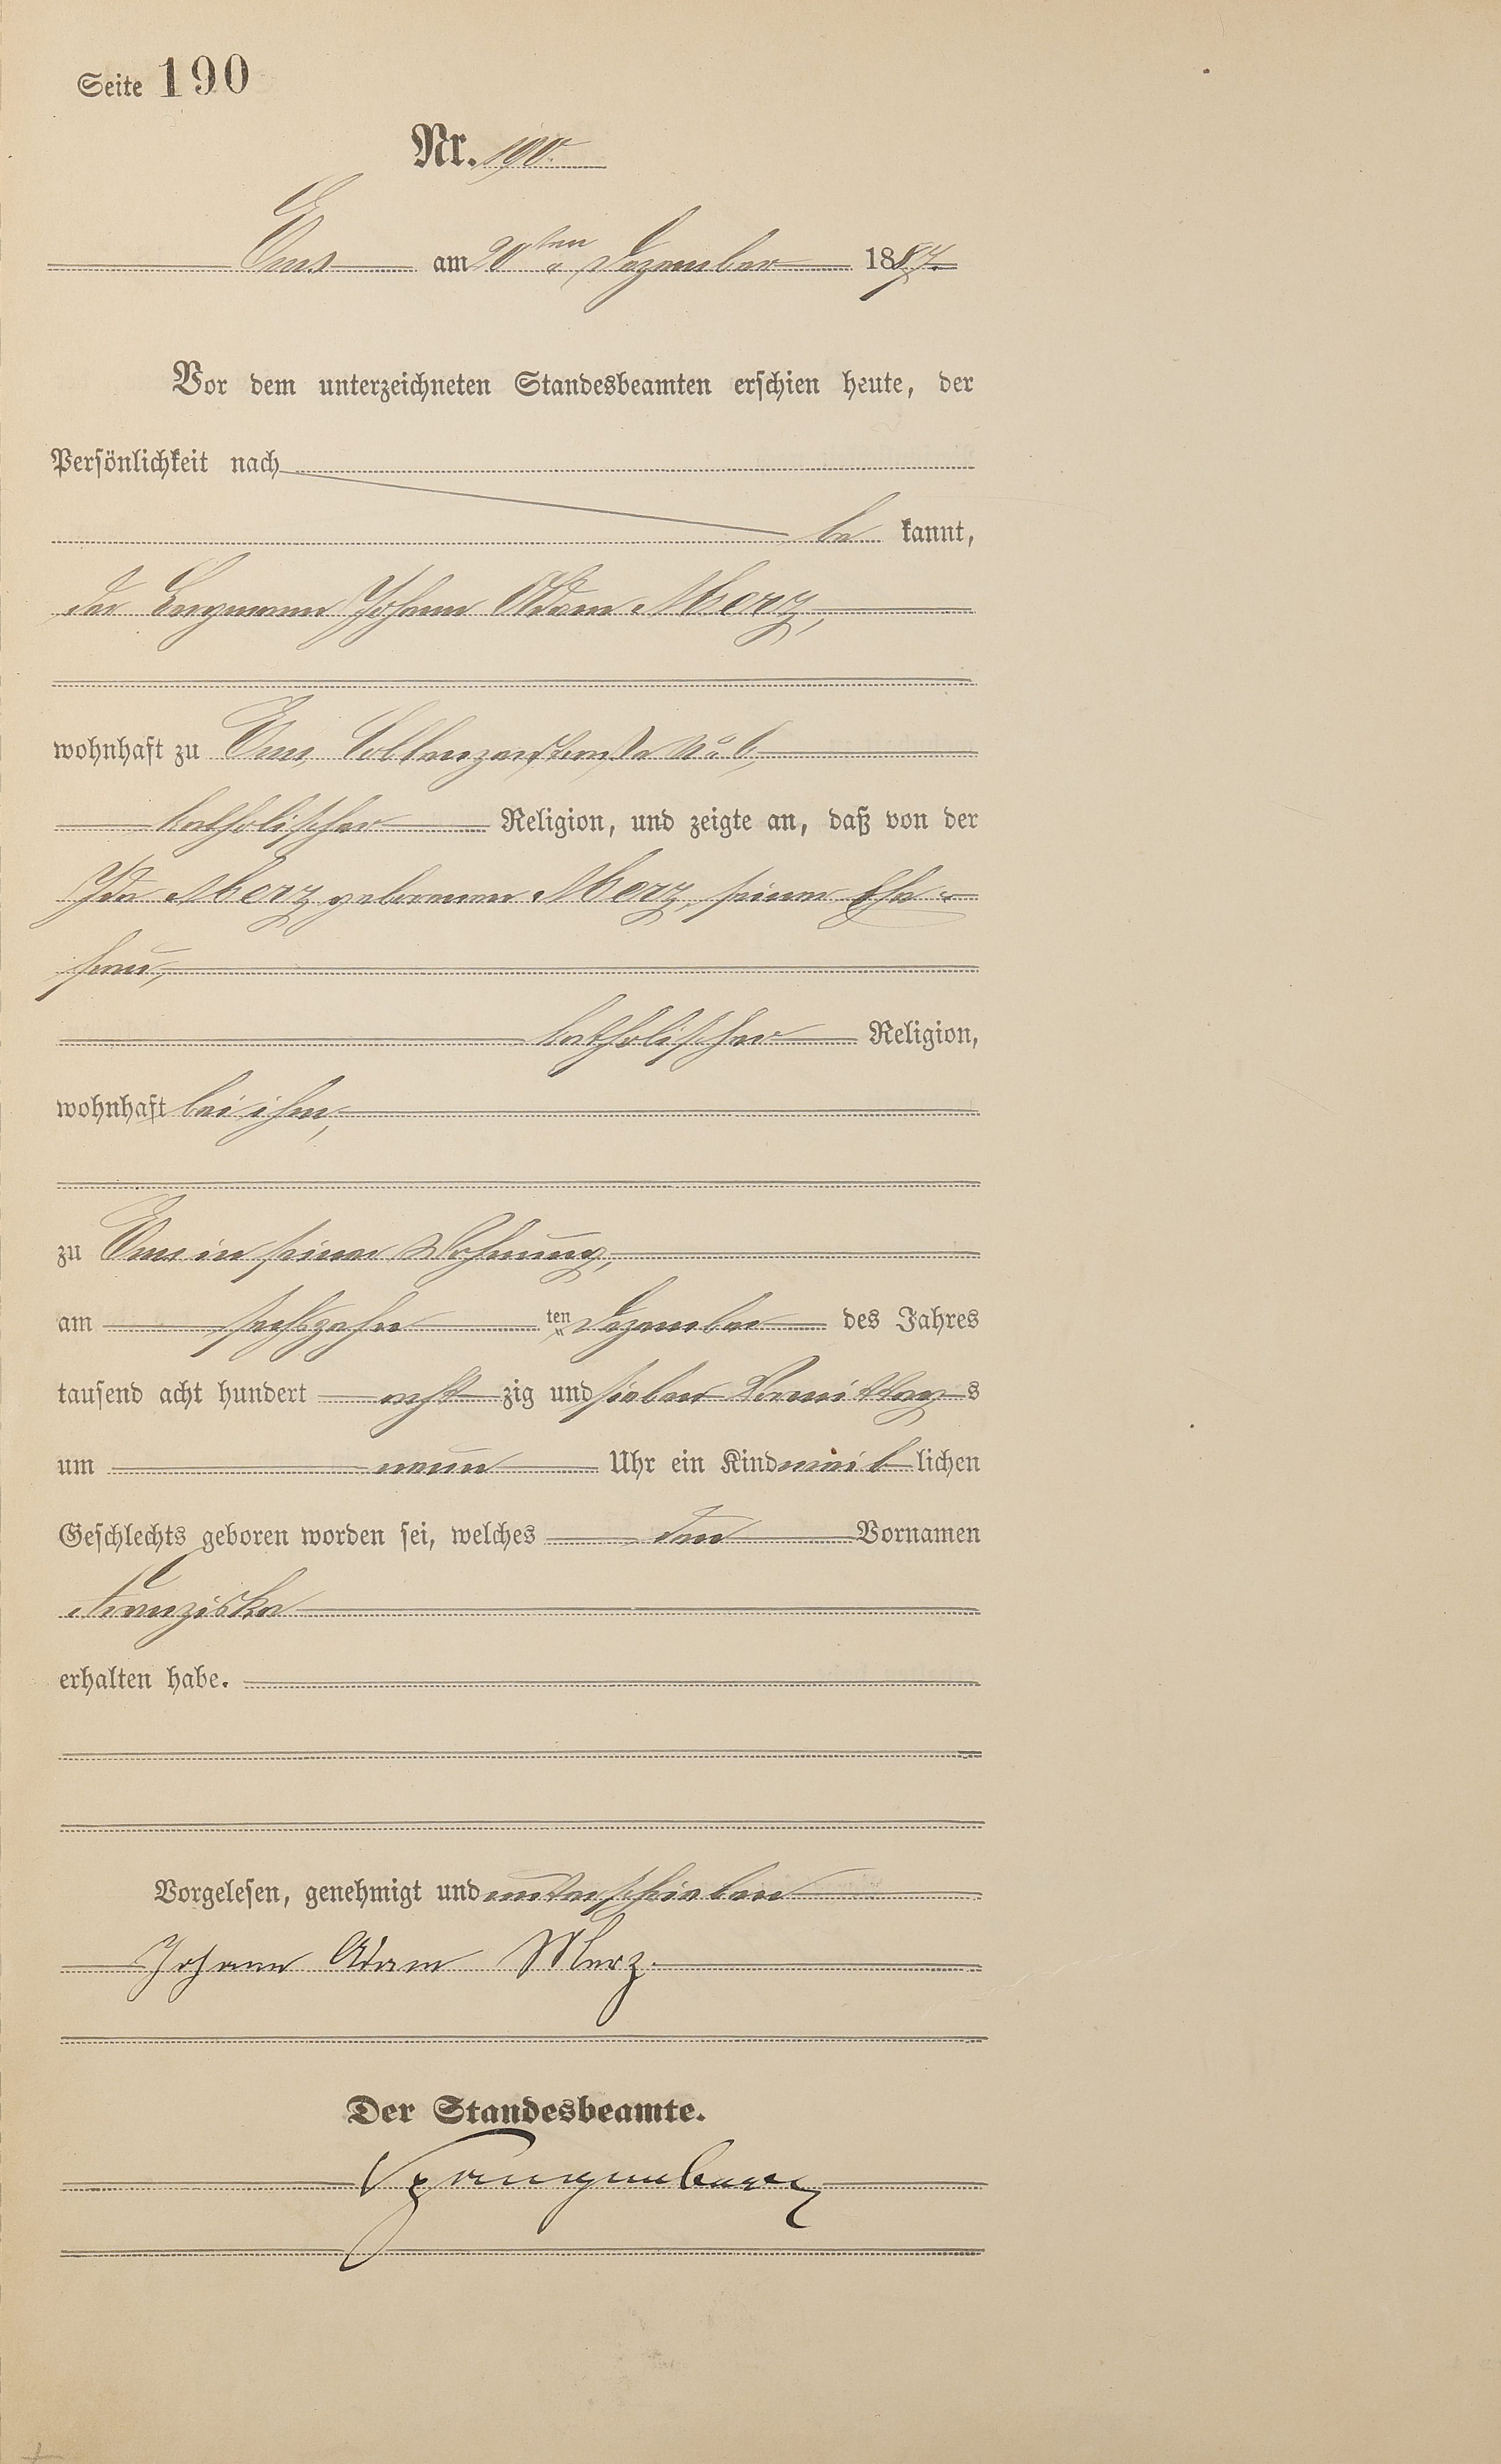 Seite 190
Nr. 190.
Ems am 20ten Dezember 1887.
Vor dem unterzeichneten Standesbeamten erschien heute, der
Persönlichkeit nach
be kannt,
der Bergmann Johann Adam Merz,
wohnhaft zu Ems, Coblenzerstraße No 6,
katholischer Religion, und zeigte an, daß von der
Ida Merz geborenen Merz, seiner Ehe-
frau,
katholischer Religion,
wohnhaft bei ihm,
zu Ems in seiner Wohnung,
am sechszehn ten Dezember des Jahres
tausend acht hundert acht zig und sieben Vormittags
um neun Uhr ein Kind weib lichen
Geschlechts geboren worden sei, welches den Vornamen
Franziska
erhalten habe.
Vorgelesen, genehmigt und unterschrieben
Johann Adam Merz.
Der Standesbeamte.